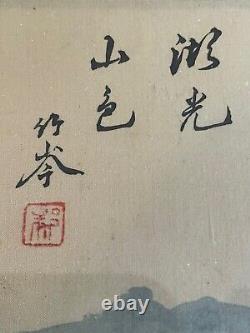 湖光
山色
竹岑